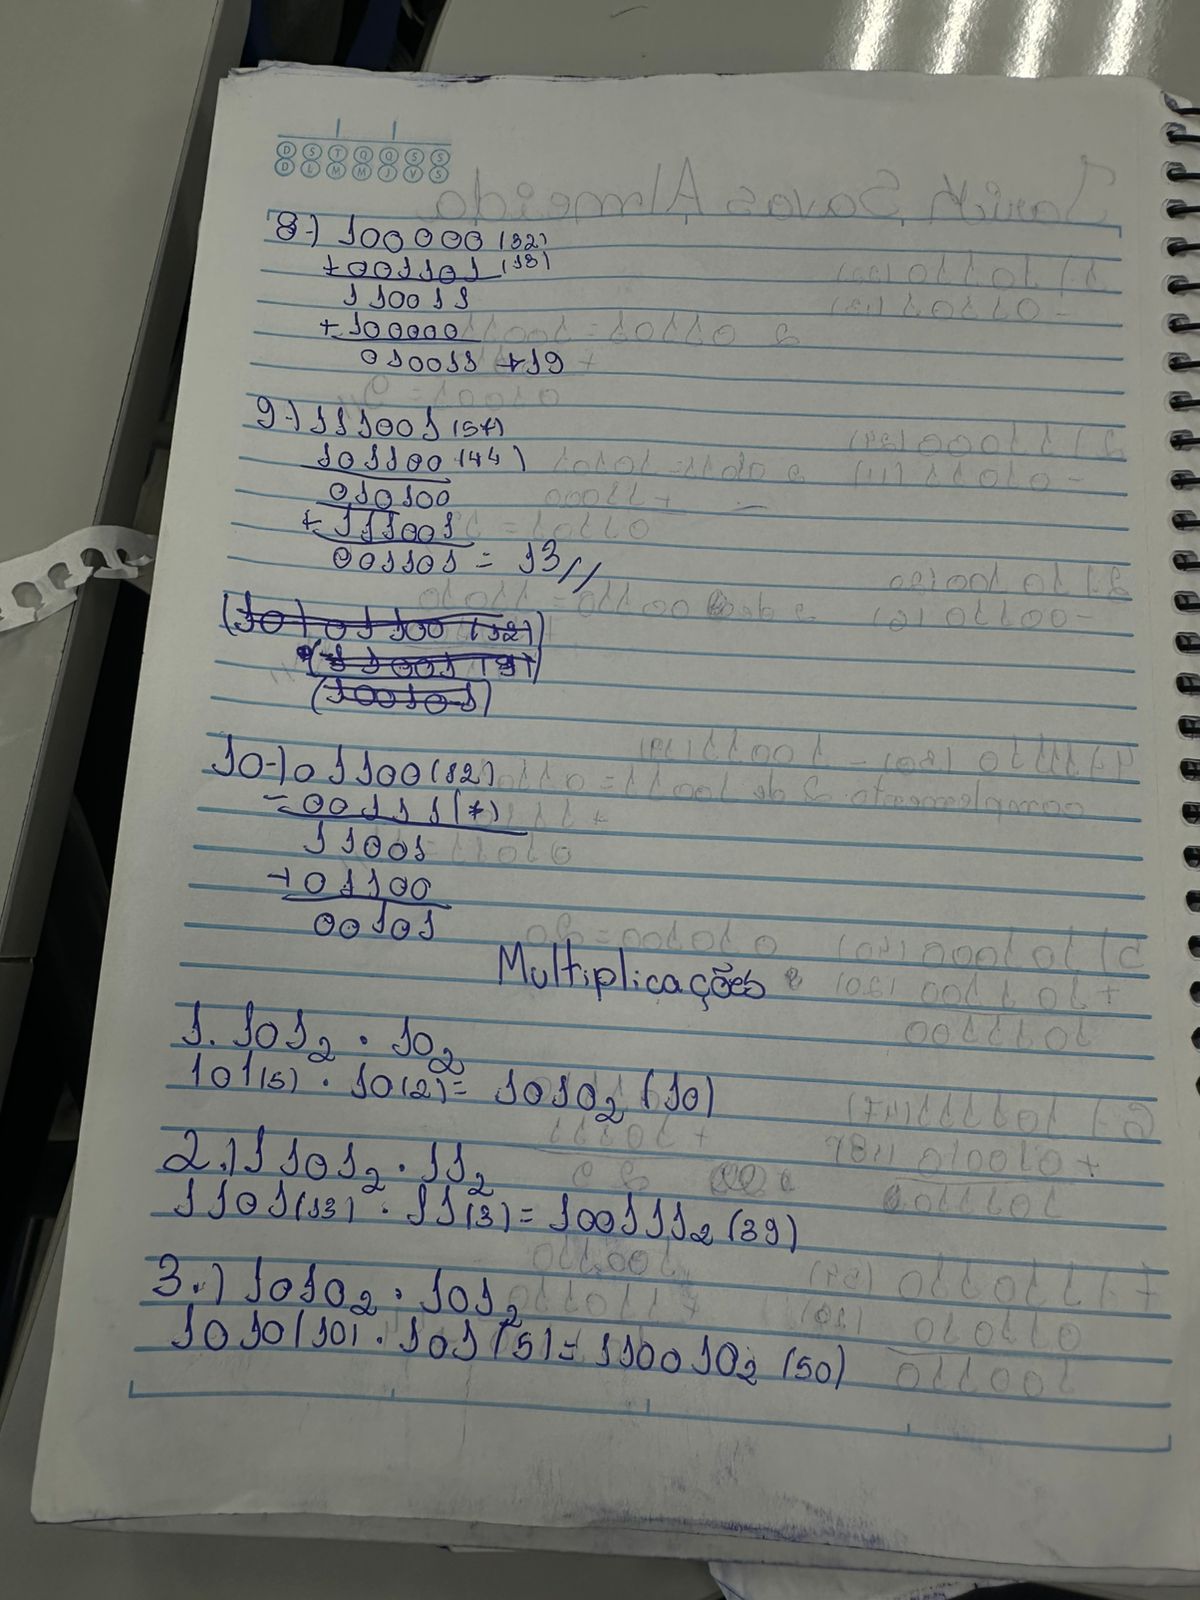 D S T Q Q S S
D L M M J V S
8-) 100000 (32)
+001101 (13)
110011
+100000
010011 +19
9-) 111001 (57)
101100 (44)
010100
+111001
001101 = 13//
(10) 01100 (12)
10-) 01100 (12)
-00111 (7)
11001
+01100
00101
Multiplicações
1. 101₂ · 10₂
101(5) · 10(2) = 1010₂ (10)
2.) 1101₂ · 11₂
1101(13) · 11(3) = 100111₂ (39)
3.) 1010₂ · 101₂
1010(10) · 101(5) = 110010₂ (50)